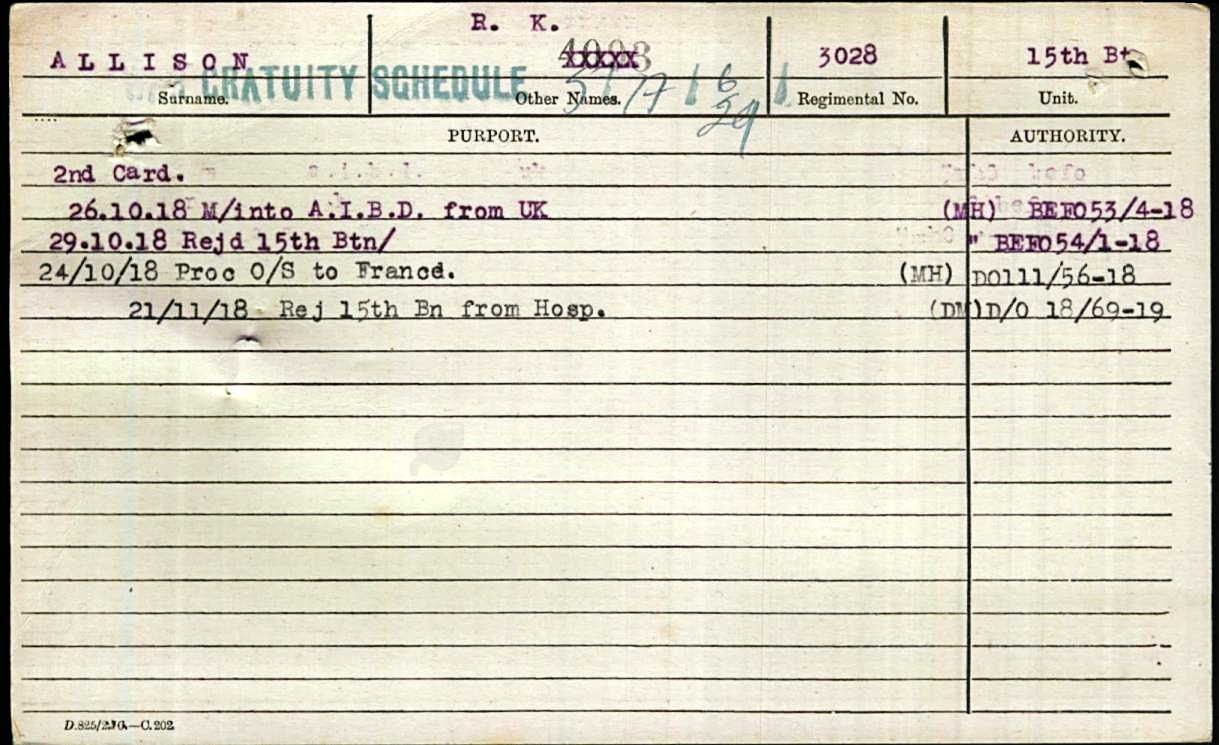 R. K.
ALLISON 3028 15th Bt
GRATUITY SCHEDULE
Surname. Other Names. Regimental No. Unit.
PURPORT. AUTHORITY.
2nd Card.
26.10.18 M/into A.I.B.D. from UK (MH) BEFO53/4-18
29.10.18 Rejd 15th Btn/ " BEFO54/1-18
24/10/18 Proc O/S to Francd. (MH) DO111/56-18
21/11/18 Rej 15th Bn from Hosp. (DM)D/O 18/69-19